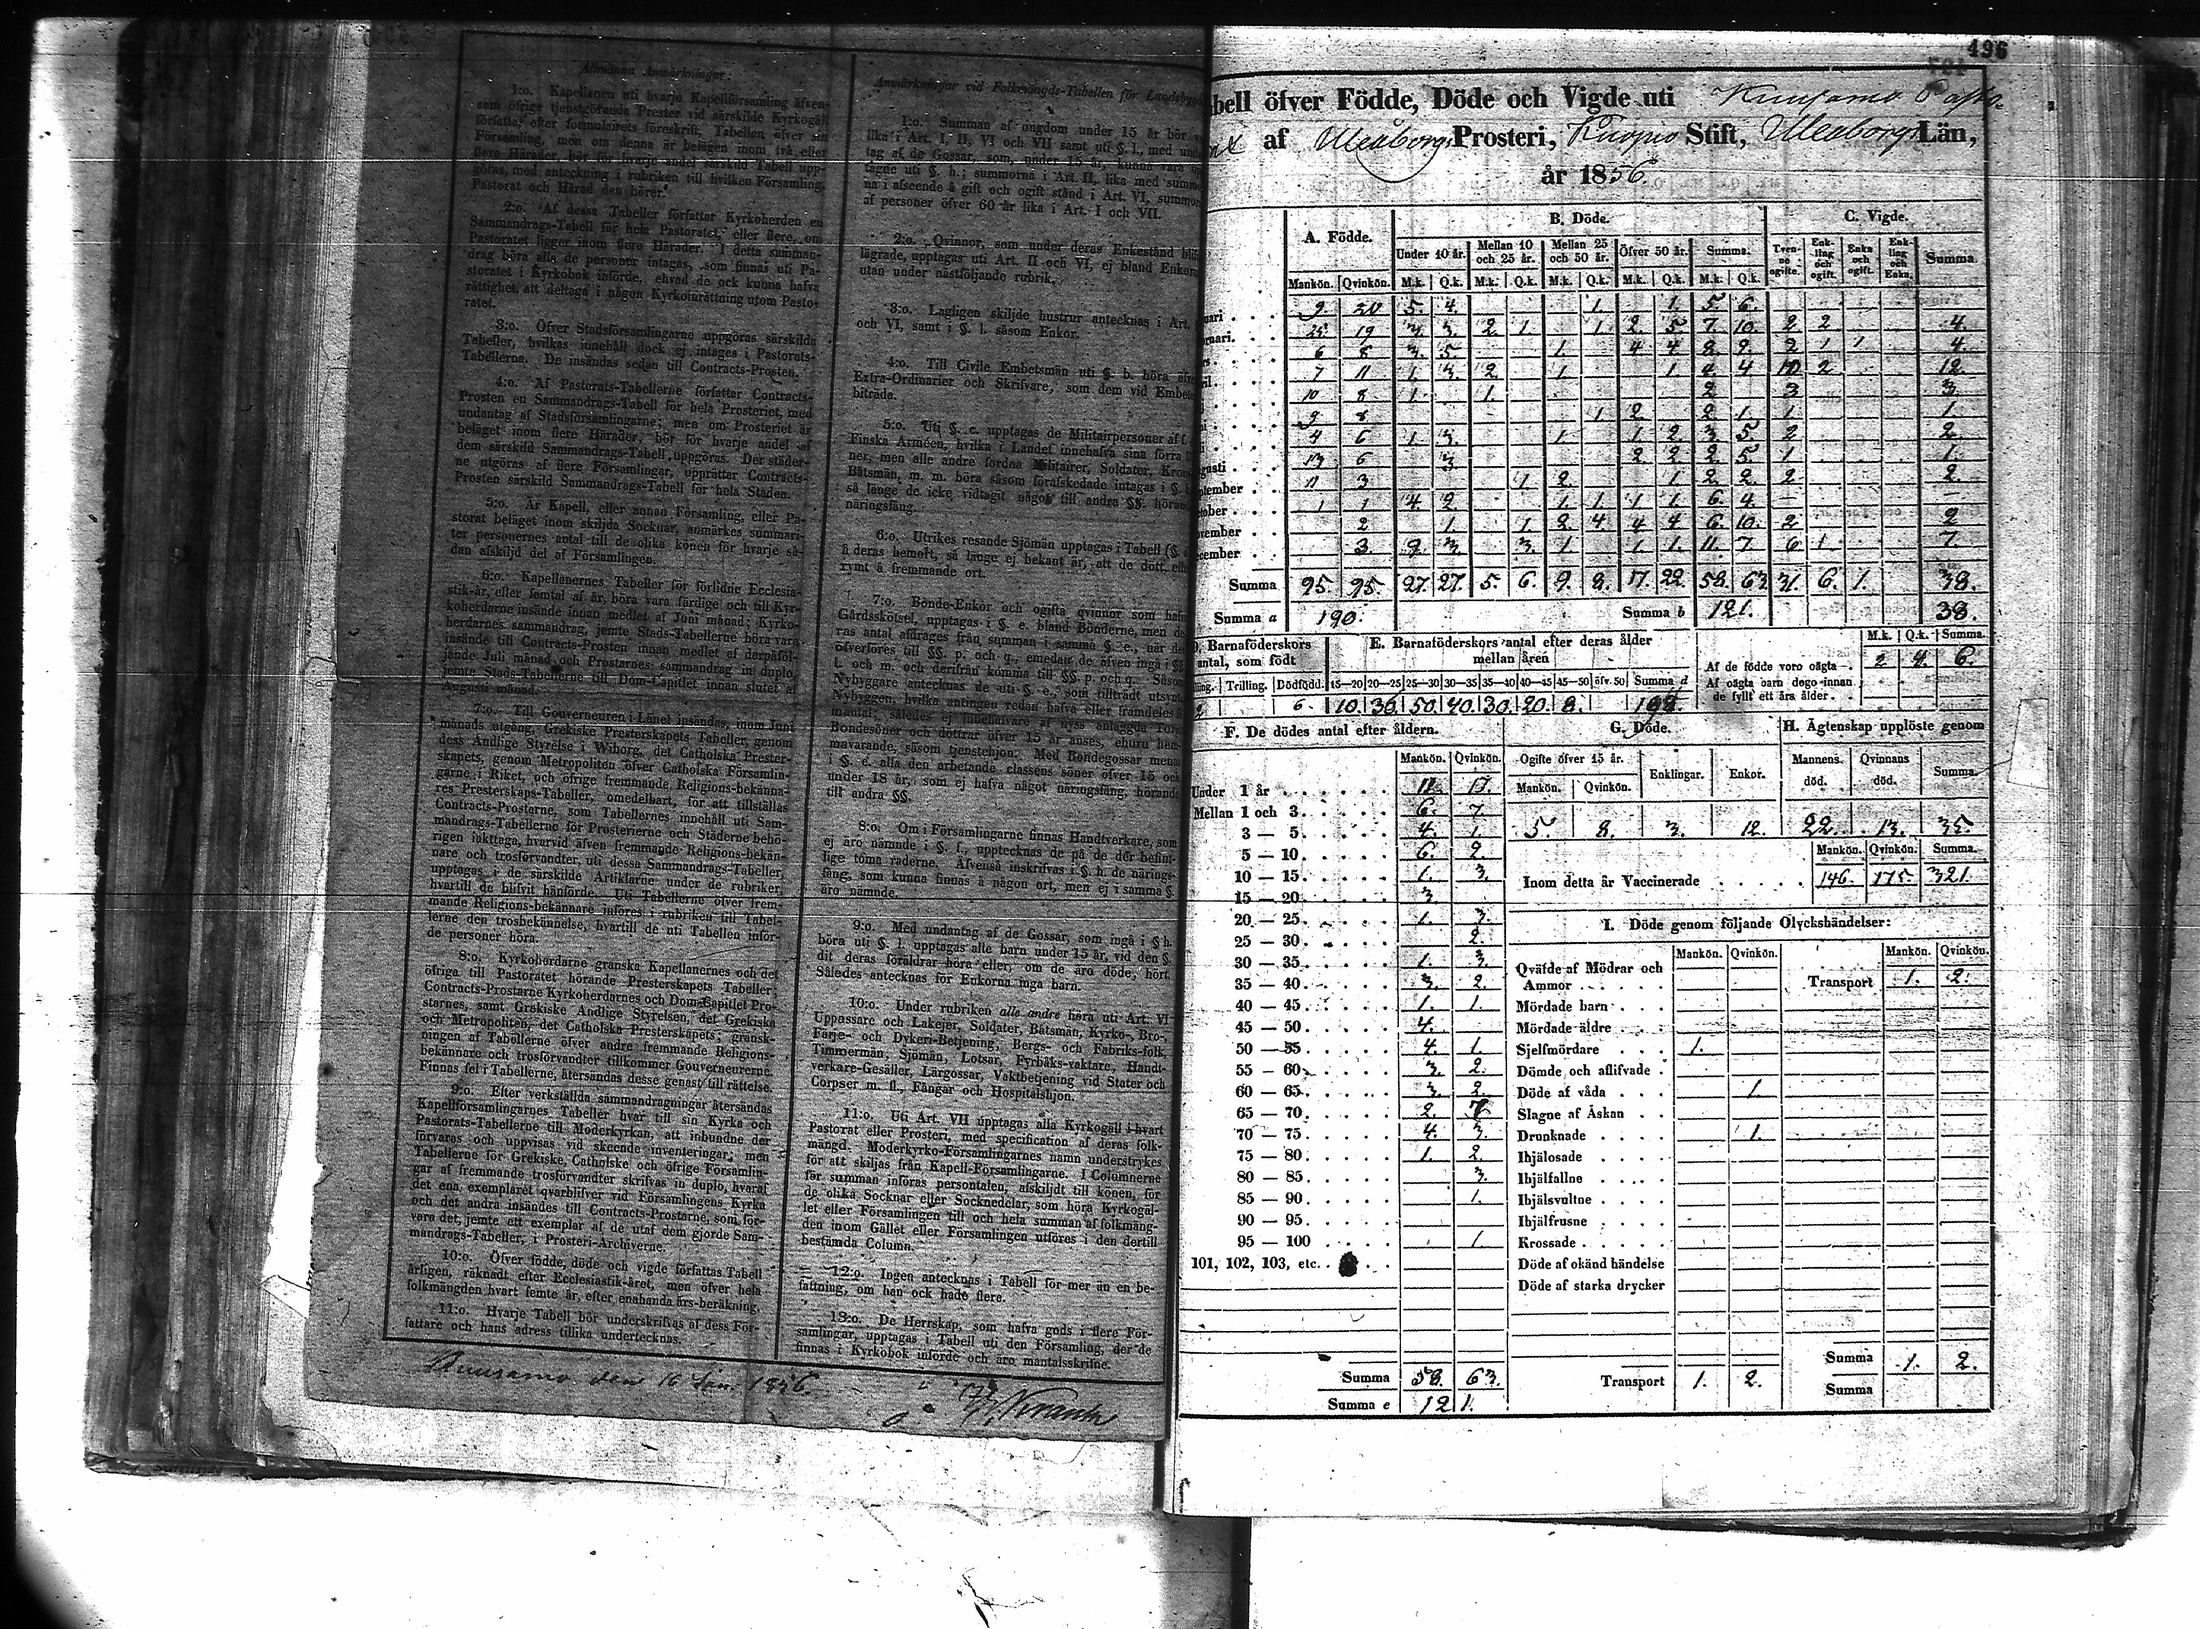 Allmänna Anmärkningar:
1:o. Kapellanen uti hvarje Kapellförsamling äfven-
som öfrige tjenstgörande Prester vid särskilde Kyrkogäll
författa, efter formulairets föreskrift, Tabellen öfver sin
Församling, men om denna är belägen inom två eller
flere Härader, bör för hvarje andel särskild Tabell upp-
göras, med anteckning i rubriken till hvilken Församling,
Pastorat och Härad den hörer.
2:o. Af dessa Tabeller författar Kyrkoherden en
Sammandrags-Tabell för hela Pastoratet, eller flere, om
Pastoratet ligger inom flere Härader. I detta samman-
drag böra alla de personer intagas, som finnas uti Pa-
storatet i Kyrkobok införde, ehvad de ock kunna hafva
rättighet att deltaga i någon Kyrkoinrättning utom Pasto-
ratet.
3:o. Öfver Stadsförsamlingarne uppgöras särskilda
Tabeller, hvilkas innehåll dock ej intages i Pastorats-
Tabellerna. De insändas sedan till Contracts-Prosten.
4:o. Af Pastorats-Tabellerne författar Contracts-
Prosten en Sammandrags-Tabell för hela Prosteriet, med
undantag af Stadsförsamlingarne; men om Prosteriet är
beläget inom flere Härader, bör för hvarje andel af
dem särskild Sammandrags-Tabell uppgöras. Der städer-
ne utgöras af flere Församlingar, upprättar Contracts-
Prosten särskild Sammandrags-Tabell för hela Staden.
5:o. Är Kapell, eller annan Församling, eller Pa-
storat beläget inom skiljda Socknar, anmärkes summari-
ter personernes antal till de olika könen för hvarje så-
dan afskiljd del af Församlingen.
6:o. Kapellanernes Tabeller för förflidne Ecclesia-
stik-år, eller femtal af år, böra vara färdige och till Kyr-
koherdarne insände innan medlet af Juni månad; Kyrko-
herdarnes sammandrag, jemte Stads-Tabellerne böra vara
insände till Contracts-Prosten innan medlet af derpåföl-
jande Juli månad, och Prostarnes sammandrag in duplo,
jemte Stads-Tabellerne till Dom-Capitlet innan slutet af
Augusti månad.
7:o. Till Gouverneuren i Länet insändas, inom Juni
månads utgång, Grekiske Presterskapets Tabeller, genom
dess Andlige Styrelse i Wiborg, det Catholska Prester-
skapets, genom Metropoliten öfver Catholska Församlin-
garne i Riket, och öfrige fremmande Religions-bekänna-
res Presterskaps-Tabeller, omedelbart, för att tillställas
Contracts-Prostarne, som Tabellernes innehåll uti Sam-
mandrags-Tabellerne för Prosterierne och Städerne behö-
rigen iakttaga, hvarvid äfven fremmande Religions-bekän-
nare och trosförvandter, uti dessa Sammandrags-Tabeller,
upptagas i de särskilde Artiklarne under de rubriker,
hvartill de blifvit hänförde. Uti Tabellerne öfver frem-
mande Religions-bekännare införes i rubriken till Tabel-
lerne den trosbekännelse, hvartill de uti Tabellen inför-
de personer höra.
8:o. Kyrkoherdarne granska Kapellanernes och det
öfriga till Pastoratet hörande Presterskapets Tabeller;
Contracts-Prostarne Kyrkoherdarnes och Dom-Capitlet Pro-
starnes, samt Grekiske Andlige Styrelsen, det Grekiska
och Metropoliten, det Catholska Presterskapets; gransk-
ningen af Tabellerne öfver andre fremmande Religions-
bekännare och trosförvandter tillkommer Gouverneurerne.
Finnas fel i Tabellerne, återsändas desse genast till rättelse.
9:o. Efter verkställda sammandragningar återsändas
Kapellförsamlingarnes Tabeller hvar till sin Kyrka och
Pastorats-Tabellerne till Moderkyrkan, att inbundne der
förvaras och uppvisas vid skeende inventeringar; men
Tabellerne för Grekiske, Catholske och öfrige Församlin-
gar af fremmande trosförvandter skrifvas in duplo, hvaraf
det ena exemplaret qvarblifver vid Församlingens Kyrka
och det andra insändes till Contracts-Prostarne, som för-
vara det, jemte ett exemplar af de utaf dem gjorde Sam-
mandrags-Tabeller, i Prosteri-Archiverne.
10:o. Öfver födde, döde och vigde författas Tabell
årligen, räknadt efter Ecclesiastik-året, men öfver hela
folkmängden hvart femte år, efter enahanda års-beräkning.
11:o. Hvarje Tabell bör underskrifvas af dess För-
fattare och hans adress tillika undertecknas.
Anmärkningar vid Folkmängds-Tabellen för Landsbygd
1:o. Summan af ungdom under 15 år bör
lika i Art. I, II, VI och VII samt uti §. l., med und
tag af de Gossar, som, under 15 år, kunna vara
tagne uti §. h.; summorna i Art. II, lika med summ
na i afseende å gift och ogift stånd i Art. VI, summor
af personer öfver 60 år lika i Art. I och VII.
2:o. Qvinnor, som under deras Enkestånd bli
lägrade, upptagas uti Art. II och VI, ej bland Enkor
utan under nästföljande rubrik.
3:o. Lagligen skiljde hustrur antecknas i Art.
och VI, samt i §. l. såsom Enkor.
4:o. Till Civile Embetsmän uti §. b. höra äfv
Extra-Ordinarier och Skrifvare, som dem vid Embet
biträda.
5:o. Uti §. c. upptagas de Militairpersoner af f.
Finska Arméen, hvilka i Landet innehafva sina förra
ner, men alle andra fordna Militairer, Soldater, Kron
Båtsmän, m. m. böra såsom förafskedade intagas i §.
så länge de icke vidtagit något till andra §§. hörand
näringsfång.
6:o. Utrikes resande Sjömän upptagas i Tabell (§.
å deras hemort, så länge ej bekant är, att de dött elle
rymt å fremmande ort.
7:o. Bonde-Enkor och ogifta qvinnor som hafv
Gårdsskötsel, upptagas i §. e. bland Bönderne, men de
8:o. Om i Församlingarne finnas Handtverkare, som
ej äro nämnde i §. f., upptecknas de på de der befint-
lige toma raderne. Äfvenså inskrifvas i §. h. de närings-
fång, som kunna finnas å någon ort, men ej i samma §.
äro nämnde.
9:o. Med undantag af de Gossar, som ingå i § h.
böra uti §. l. upptagas alle barn under 15 år, vid den §.
dit deras föräldrar höra eller, om de äro döde, hört.
Således antecknas för Enkorna inga barn.
10:o. Under rubriken alle andre höra uti Art. VI
Uppassare och Lakejer, Soldater, Båtsmän, Kyrko-, Bro-,
Färje- och Dykeri-Betjening, Bergs- och Fabriks-folk,
Timmermän, Sjömän, Lotsar, Fyrbåks-vaktare, Handt-
verkare-Gesäller, Lärgossar, Vaktbetjening vid Stater och
Corpser m. fl., Fångar och Hospitalshjon.
11:o. Uti Art. VII upptagas alla Kyrkogäll i hvart
Pastorat eller Prosteri, med specification af deras folk-
mängd. Moderkyrko-Församlingarnes namn understrykes
för att skiljas från Kapell-Församlingarne. I Columnerne
för summan införas persontalen, afskiljdt till könen, för
de olika Socknar eller Socknedelar, som höra Kyrkogäl-
let eller Församlingen till och hela summan af folkmäng-
den inom Gället eller Församlingen utföres i den dertill
bestämda Column.
12:o. Ingen antecknas i Tabell för mer än en be-
fattning, om han ock hade flere.
13:o. De Herrskap, som hafva gods i flere För-
samlingar, upptagas i Tabell uti den Församling, der de
finnas i Kyrkobok införde och äro mantalsskrifne.
Kuusamo den 16 1856.
496
bell öfver Födde, Döde och Vigde uti Kuusamo Pasto-
rat af Uleåborgs Prosteri, Kuopio Stift, Uleåborgs Län,
år 1856.
A. Födde. B. Döde. C. Vigde.
Under 10 år. Mellan 10 och 25 år. Mellan 25 och 50 år. Öfver 50 år. Summa. Tvenne ogifte. Enkling och ogift. Enka och ogift. Enkling och Enka. Summa.
Mankön. Qvinkön. M.k. Q.k. M.k. Q.k. M.k. Q.k. M.k. Q.k. M.k. Q.k.
uari 9 20 5. 4. 1. 1. 5. 6.
ruari. 25 19 3. 3. 2. 1 1. 2. 5. 7. 10. 2 2 4.
rs 6 8 3. 5. 1. 4 4 8. 9. 2 1 1 4.
il. 7 11 1. 3. 2. 1 1. 4. 4 10 2 12.
10 8 1. 1. 2 3 3.
9 8 1. 2 2 1. 1 1.
4 6 1. 3. 1. 1. 2. 3. 5. 2 2.
gusti 13 6 3 2 2 2 5. 1 1.
ptember 11 3 1 2. 1. 2. 2. 2 2.
tober 1 1 4. 2. 1. 1. 1. 1. 6. 4. — —
vember 2 1. 1. 2. 4. 4 4 6. 10. 2 2
cember 3. 9. 3. 3. 1. 1. 1. 11. 7. 6 1. 7.
Summa 95. 95. 27. 27. 5. 6. 9. 8. 17. 22. 58. 63. 31. 6. 1. 38.
Summa a 190. Summa b 121. 38.
D. Barnaföderskors antal, som födt
E. Barnaföderskors antal efter deras ålder mellan åren
M.k. Q.k. Summa.
Af de födde voro oägta 2 4. 6.
Af oägta barn dogo innan
de fyllt ett års ålder.
lling. Trilling. Dödfödd. 15—20 20—25 25—30 30—35 35—40 40—45 45—50 öfv. 50 Summa d
2 6. 10. 30. 50. 40. 30. 20. 8.
F. De dödes antal efter åldern.
Mankön. Qvinkön.
Under 1 år 11. 17.
Mellan 1 och 3. 6. 7.
3 — 5. 4. 1.
5 — 10. 6. 2.
10 — 15. 1. 3.
15 — 20. 3
20 — 25. 1. 3.
25 — 30. 2.
30 — 35. 1. 3.
35 — 40. 3. 2.
40 — 45. 1. 1.
45 — 50. 4.
50 — 55. 4. 1.
55 — 60. 3. 2.
60 — 65. 3. 2.
65 — 70. 2. 7
70 — 75. 4. 3.
75 — 80. 1. 2.
80 — 85. 3.
85 — 90. 1.
90 — 95.
95 — 100 1.
101, 102, 103, etc.
Summa 58. 63.
Summa e 121.
G. Döde.
Ogifte öfver 15 år. Enklingar. Enkor.
Mankön. Qvinkön.
5. 8. 3. 12.
H. Ägtenskap upplöste genom
Mannens död. Qvinnans död. Summa.
22. 13. 35.
Mankön. Qvinkön. Summa.
Inom detta år Vaccinerade 146. 175. 321.
I. Döde genom följande Olyckshändelser:
Mankön. Qvinkön. Mankön. Qvinkön.
Qväfde af Mödrar och
Ammor Transport 1. 2.
Mördade barn
Mördade äldre
Sjelfmördare 1.
Dömde och aflifvade
Döde af våda 1.
Slagne af Åskan
Drunknade 1.
Ihjälosade
Ihjälfallne
Ihjälsvultne
Ihjälfrusne
Krossade
Döde af okänd händelse
Döde af starka drycker
Summa 1. 2.
Transport 1. 2. Summa